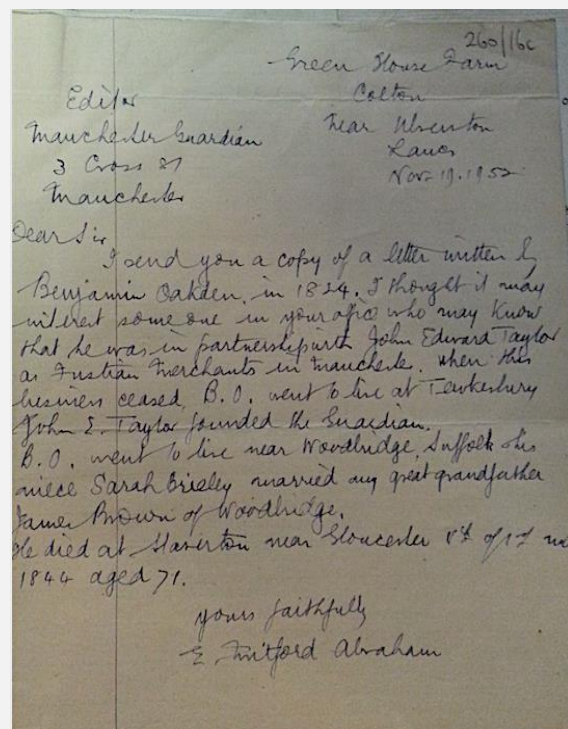 260/16c
Green House Farm
Editor Colton
Manchester Guardian Near Ulverston
3 Cross St Lancs
Manchester Nov. 19. 1952
Dear Sir
I send you a copy of a letter written by
Benjamin Oakden, in 1824. I thought it may
interest some one in your office who may know
that he was in partnership with John Edward Taylor
as Fustian Merchants in Manchester. When this
business ceased, B.O. went to live at Tewkesbury
John E. Taylor founded the Guardian.
B.O. went to live near Woodbridge, Suffolk his
niece Sarah married my great grandfather
James Brown of Woodbridge.
He died at Staverton near Gloucester of
1844 aged 71.
yours faithfully
E. Mitford Abraham